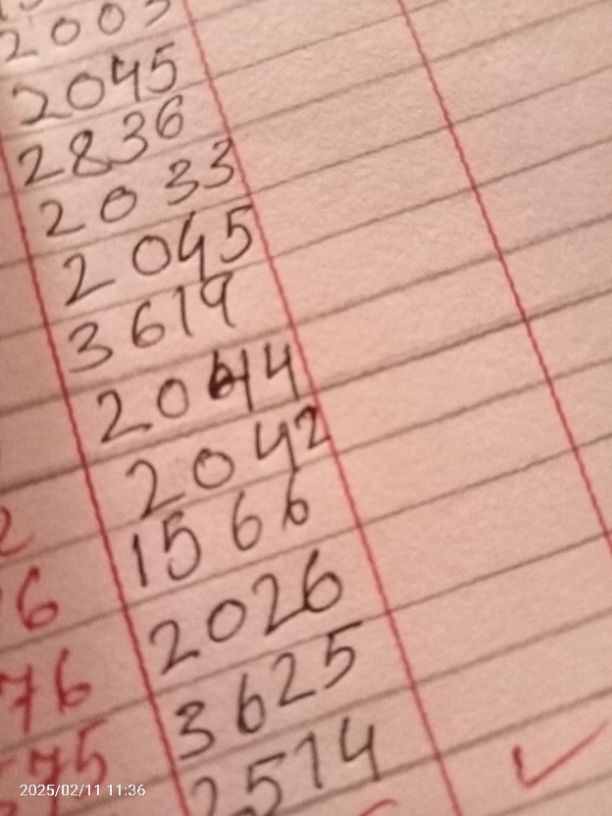 2003
2045
2836
2033
2045
3619
2044
2042
2 1566
6 2026
76 3625
575 2514
2025/02/11 11:36